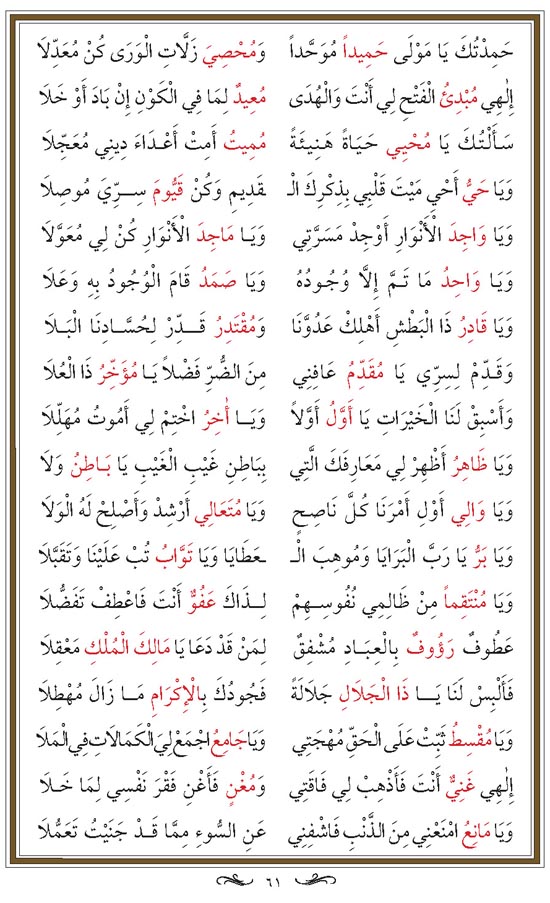 حَمِدْتُكَ يَا مَوْلَى حَمِيداً مُوَحَّداً وَمُحْصِيَ زَلَّاتِ الْوَرَى كُنْ مُعَدِّلَا
إِلٰهِي مُبْدِئُ الْفَتْحِ لِي أَنْتَ وَالْهُدَى مُعِيدٌ لِمَا فِي الْكَوْنِ إِنْ بَادَ أَوْ خَلَا
سَأَلْتُكَ يَا مُحْيِي حَيَاةً هَنِيئَةً مُمِيتُ أَمِتْ أَعْدَاءَ دِينِي مُعَجِّلَا
وَيَا حَيُّ أَحْيِ مَيْتَ قَلْبِي بِذِكْرِكَ الْـ ـقَدِيمِ وَكُنْ قَيُّومَ سِرِّيَ مُوصِلَا
وَيَا وَاجِدَ الْأَنْوَارِ أَوْجِدْ مَسَرَّتِي وَيَا مَاجِدَ الْأَنْوَارِ كُنْ لِي مُعَوَّلَا
وَيَا وَاحِدُ مَا تَمَّ إِلَّا وُجُودُهُ وَيَا صَمَدُ قَامَ الْوُجُودُ بِهِ وَعَلَا
وَيَا قَادِرُ ذَا الْبَطْشِ أَهْلِكْ عَدُوَّنَا وَمُقْتَدِرُ قَدِّرْ لِحُسَّادِنَا الْبَلَا
وَقَدِّمْ لِسِرِّي يَا مُقَدِّمُ عَافِنِي مِنَ الضُّرِّ فَضْلاً يَا مُؤَخِّرُ ذَا الْعُلَا
وَأَسْبِقْ لَنَا الْخَيْرَاتِ يَا أَوَّلُ أَوَّلاً وَيَا أٰخِرُ اخْتِمْ لِي أَمُوتُ مُهَلِّلَا
وَيَا ظَاهِرُ أَظْهِرْ لِي مَعَارِفَكَ الَّتِي بِبَاطِنِ غَيْبِ الْغَيْبِ يَا بَاطِنُ وَلَا
وَيَا وَالِي أَوْلِ أَمْرَنَا كُلَّ نَاصِحٍ وَيَا مُتَعَالِي أَرْشِدْ وَأَصْلِحْ لَهُ الْوَلَا
وَيَا بَرُّ يَا رَبَّ الْبَرَايَا وَمُوهِبَ الْـ ـعَطَايَا وَيَا تَوَّابُ تُبْ عَلَيْنَا وَتَقَبَّلَا
وَيَا مُنْتَقِماً مِنْ ظَالِمِي نُفُوسِهِمْ لِذَاكَ عَفُوٌّ أَنْتَ فَاعْطِفْ تَفَضُّلَا
عَطُوفٌ رَؤُوفٌ بِالْعِبَادِ مُشْفِقٌ لِمَنْ قَدْ دَعَا يَا مَالِكَ الْمُلْكِ مَعْقِلَا
فَأَلْبِسْ لَنَا يَا ذَا الْجَلَالِ جَلَالَةً فَجُودُكَ بِالْإِكْرَامِ مَا زَالَ مُهْطِلَا
وَيَا مُقْسِطُ ثَبِّتْ عَلَى الْحَقِّ مُهْجَتِي وَيَا جَامِعُ اجْمَعْ لِيَ الْكَمَالَاتِ فِي الْمَلَا
إِلٰهِي غَنِيٌّ أَنْتَ فَأَذْهِبْ لِي فَاقَتِي وَمُغْنٍ فَأَغْنِ فَقْرَ نَفْسِي لِمَا خَلَا
وَيَا مَانِعُ امْنَعْنِي مِنَ الذَّنْبِ فَاشْفِنِي عَنِ السُّوءِ مِمَّا قَدْ جَنَيْتُ تَعَمُّلَا
٦١